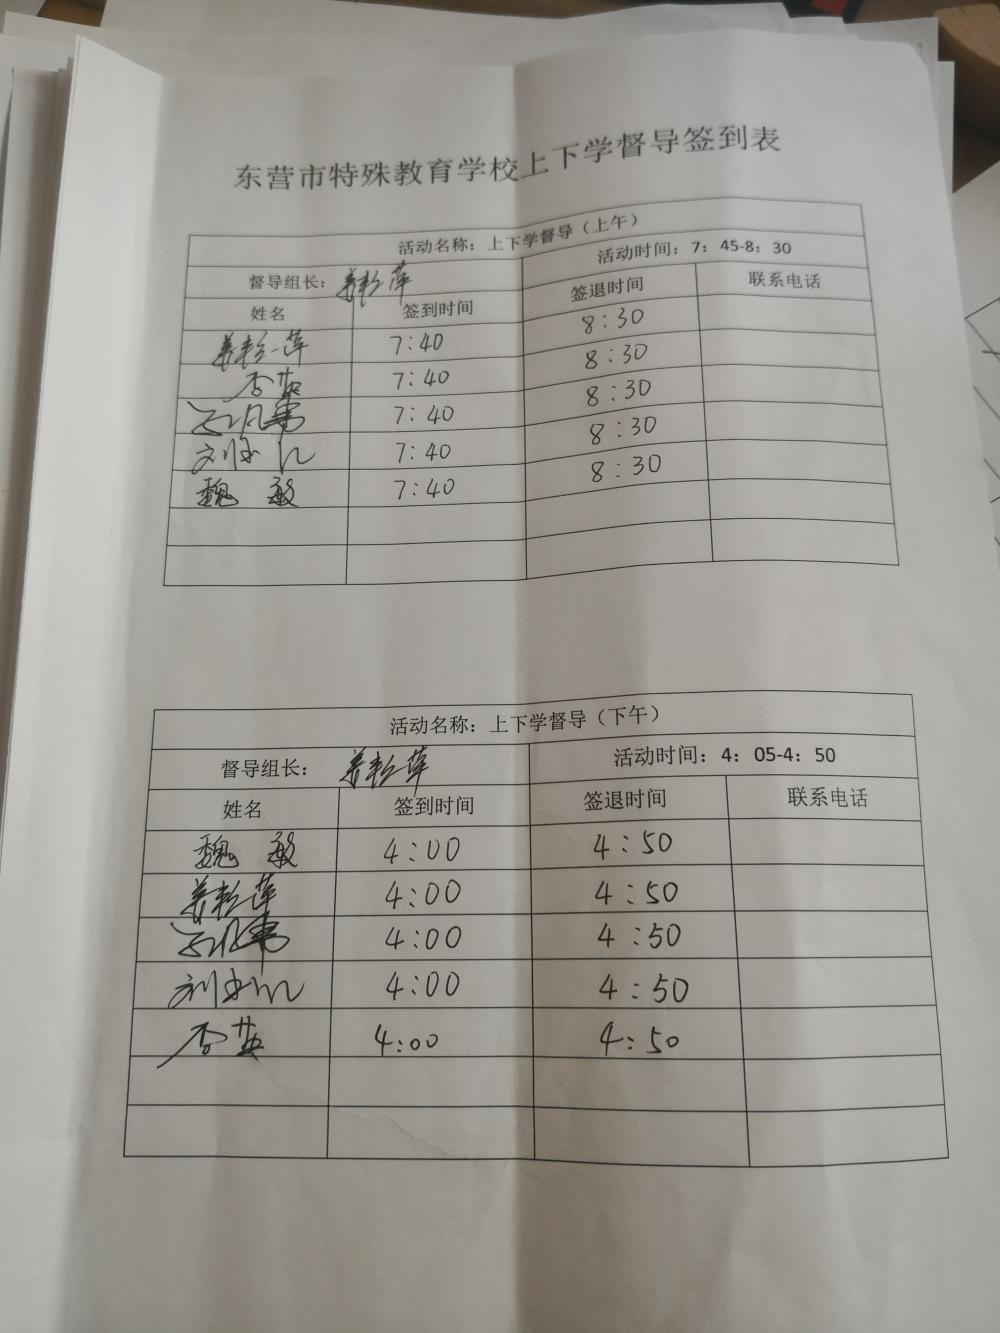 东营市特殊教育学校上下学督导签到表
活动名称：上下学督导（上午）
督导组长： 活动时间：7：45-8：30
姓名 签到时间 签退时间 联系电话
7:40 8:30
7:40 8:30
7:40 8:30
7:40 8:30
魏敏 7:40 8:30
活动名称：上下学督导（下午）
督导组长： 活动时间：4：05-4：50
姓名 签到时间 签退时间 联系电话
魏敏 4:00 4:50
4:00 4:50
4:00 4:50
4:00 4:50
4:00 4:50